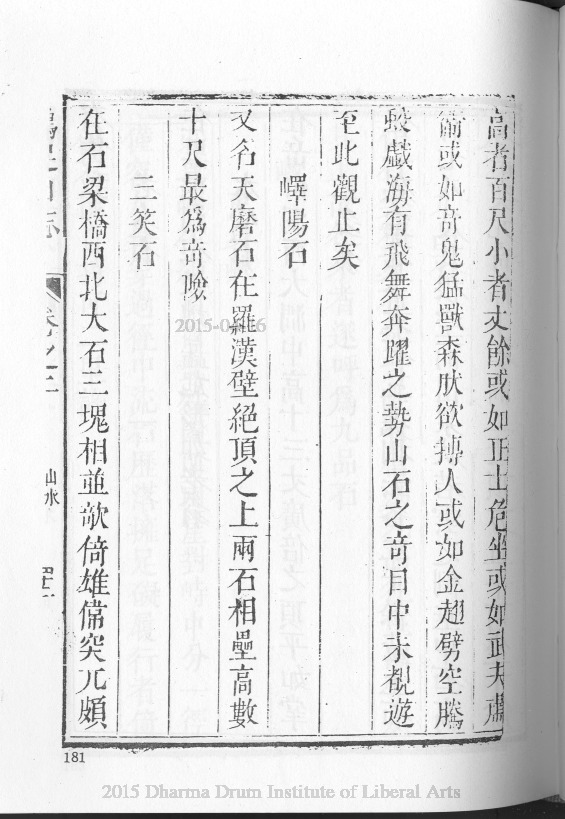 高者百尺小者丈餘或如正士危坐或如武夫
衞或如奇鬼猛獸森肰欲搏人或如金翅劈空騰
蛟戲海有飛舞奔躍之勢山石之奇目中未覩遊
至此觀止矣
嶧陽石
又名天磨石在羅漢壁絕頂之上兩石相壘高數
十尺最爲奇險
三笑石
在石梁橋西北大石三塊相並欹倚雄偉突兀頗
山志 卷之三 山水
181
2015 Dharma Drum Institute of Liberal Arts